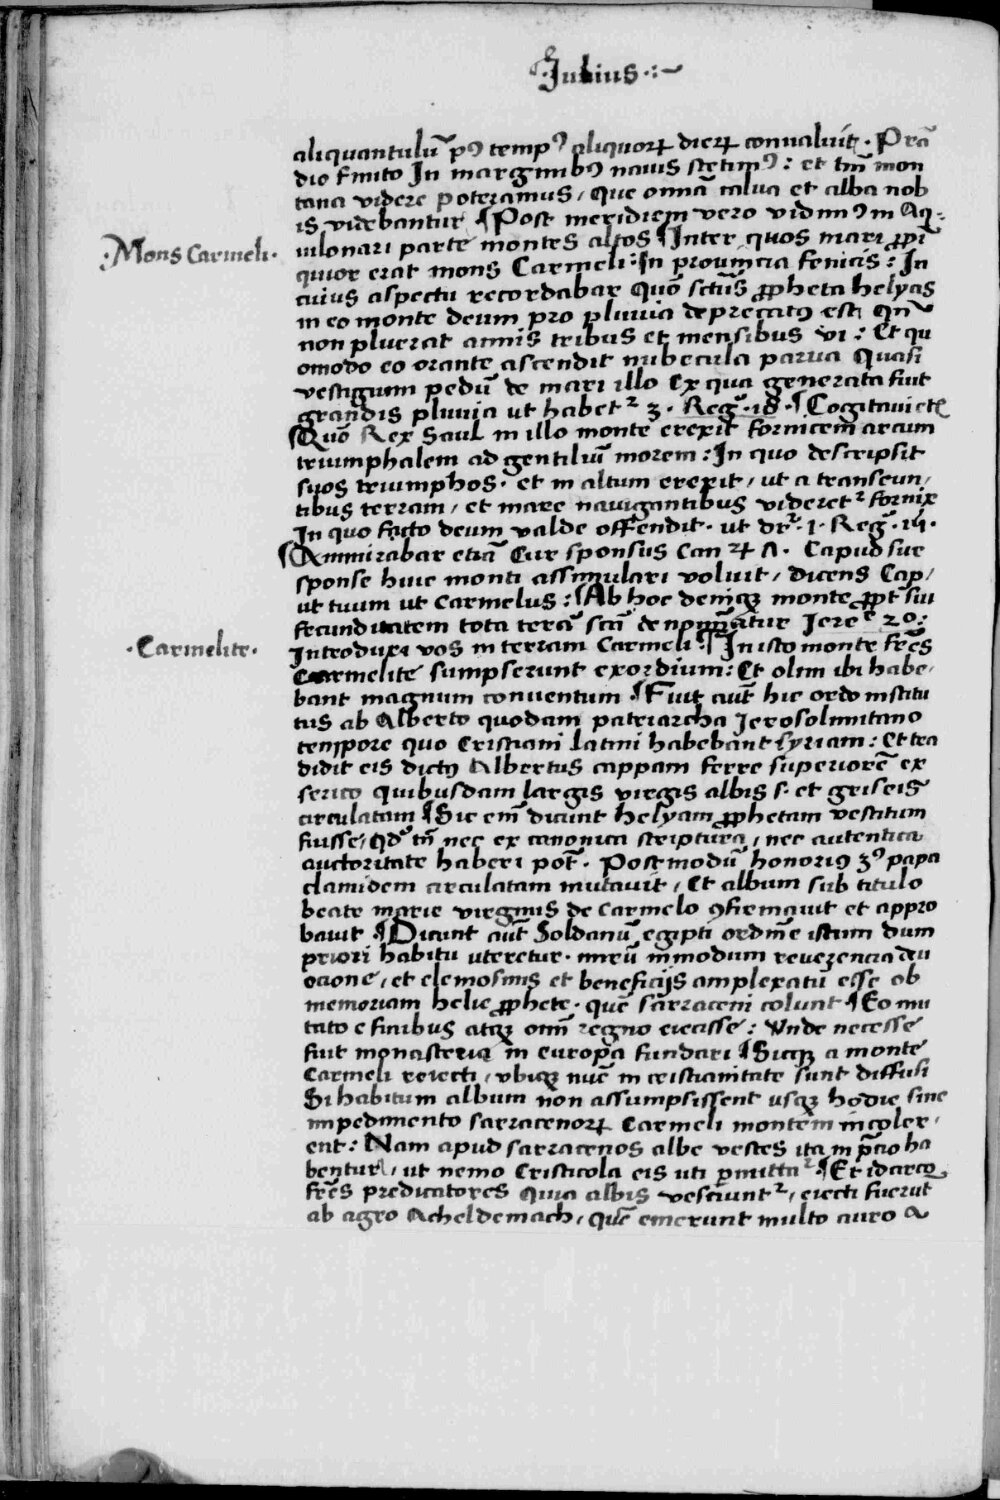 ·Julius·:~
aliquantulū pꝰ tempꝰ aliquoꝝ dieꝝ convaluit · Prā
dio finito In marginibꝰ navis stetimꝰ : et tm̄ mon
tana videre poteramus / Que omnā calva et alba nob
is videbantur ¶ Post meridiem vero vidimꝰ in Aq-
·Mons Carmeli·
uilonari parte montes altos ¶ Inter quos mari ꝓpī
quior erat mons Carmeli : In provincia fenicis : In
cuius aspectu recordabar Quō sctūs ꝓpheta helyas
in eo monte deum pro pluvia deprecatꝰ est qn̄
non pluerat annis tribus et mensibus vi : Et qu
omodo eo orante ascendit nubecula parva Quasi
vestigium pedū de mari illo Ex qua generata fuit
grandis pluvia ut habetᷣ 3 · Reg · 18 · ¶ Cogitavi etc̄
¶ Quō Rex Saul in illo monte erexit fornicem arcum
triumphalem ad gentiliū morem : In quo descripsit
suos triumphos · et in altum erexit / ut a transeun /
tibus terram / et mare navigantibus videretᷣ fornix
In quo facto deum valde offendit · ut dr̄ · 1 · Reg̅ · 15 ·
¶ Ammirabar etiā Cur sponsus Canꝝ A · Capud sue
sponse huic monti assimulari voluit / dicens Cap /
ut tuum ut Carmelus : ¶ Ab hoc deniqꝫ monte ꝓpt̄ sui
fecunditatem tota terā sc̄ā denominatur Jere 20 :
·Carmelite·
Introduxi vos in terram Carmeli · ¶ In isto monte fr̄es
Carmelite sumpserunt exordium : Et olim ibi habe /
bant magnum conventum ¶ Fuit aūt hic ordo institu
tus ab Alberto quodam patriarcha Jerosolimitano
tempore quo Cristiani latini habebant syriam : Et tra
didit eis dictꝰ Albertus cappam ferre superiorē ex
serico quibusdam largis virgis albis s · et griseis
circulatam ¶ Sic em̄ dicunt helyam ꝓphetam vestitum
fuisse / qd̄ tn̄ nec ex canonica scriptura / nec autentica
auctoritate haberi pōt · Post modū honoriꝰ 3ꝰ papa
clamidem circulatam mutavit / Et album sub titulo
beate marie virginis de Carmelo ꝯfirmavit et appro
bavit ¶ Dicunt aūt Soldanū egipti ordinē istum dum
priori habitu uteretur · mirū inmodum reverencia dev
ocione / et elemosinis et beneficijs amplexatū esse ob
memoriam helie ꝓphete · quē sarraceni colunt ¶ Eo mu
tato e finibus atqꝫ omī regno eiecisse : Unde necesse
fuit monasteria in europa fundari ¶ Sicqꝫ a monte
Carmeli reiecti / ubiqꝫ nūc in cristianitate sunt diffusi
Si habitum album non assumpsissent usqꝫ hodie sine
impedimento sarracenoꝝ Carmeli montem incoler /
ent : Nam apud sarracenos albe vestes ita in p̄cio ha
bentur / ut nemo Cristicola eis uti ꝑmittaᷣ · ¶ Et idcirco
fr̄es predicatores Quia albis vesciuntᷣ / eiecti fuerūt
ab agro Acheldemach / quē emerunt multo auro a